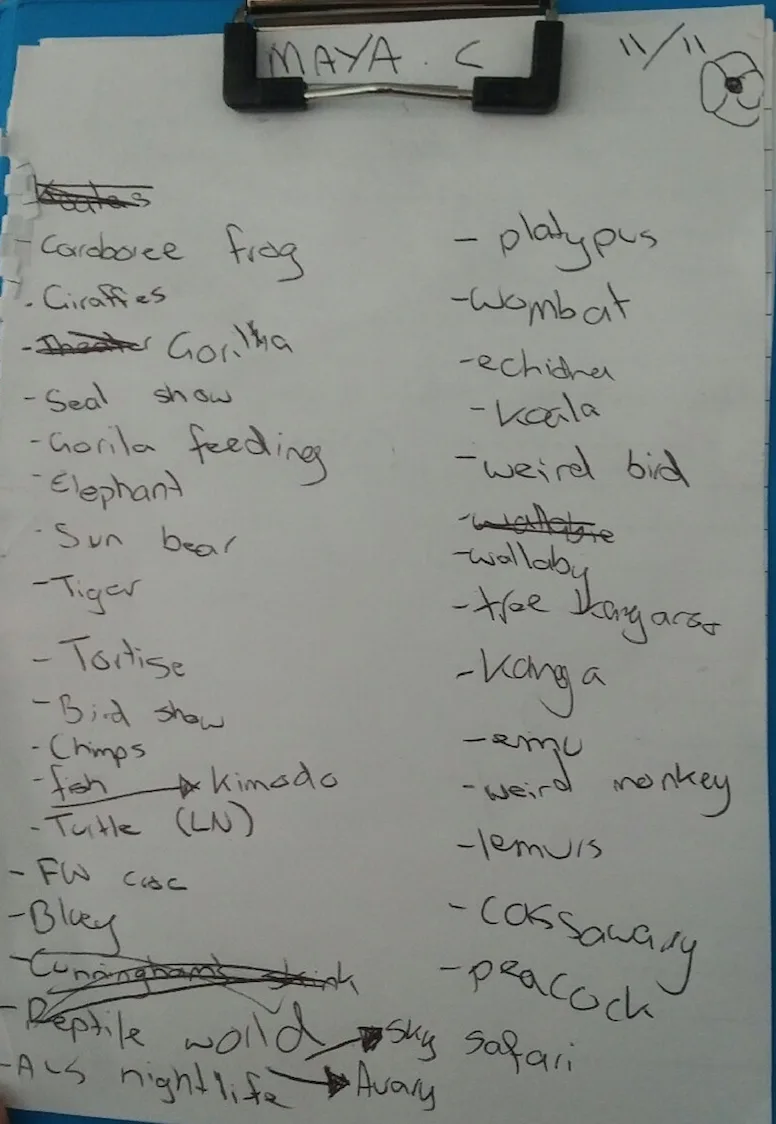 MAYA. C
11/11
- Coroboree frog
- Giraffies
- Gorilla
- Seal show
- Gorila feeding
- Elephant
- Sun bear
- Tiger
- Tortise
- Bird show
- Chimps
- fish → Kimodo
- Turtle (LN)
- FW croc
- Bluey
- Cunningham's skink
- Reptile world → Sky safari
- AUS nightlife → Avary
- platypus
- Wombat
- echidna
- Koala
- weird bird
- wallabie
- wallaby
- tree kangaroo
- Kanga
- emu
- weird monkey
- lemurs
- cassawary
- peacock